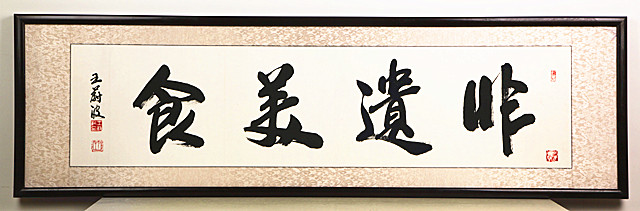 非遺美食
王蔚波